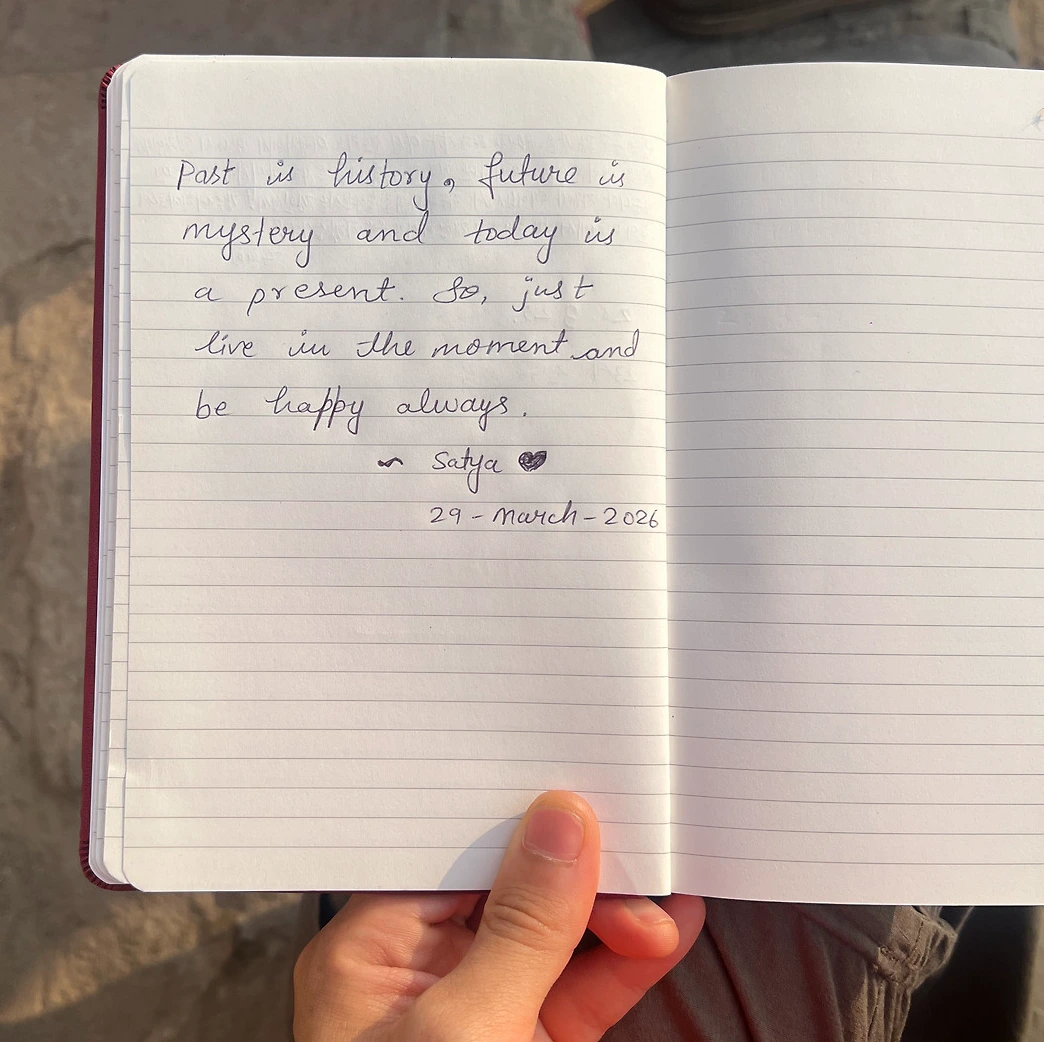 Past is history, future is
mystery and today is
a present. So, just
live in the moment and
be happy always.
~ Satya ♥
29 - March - 2026